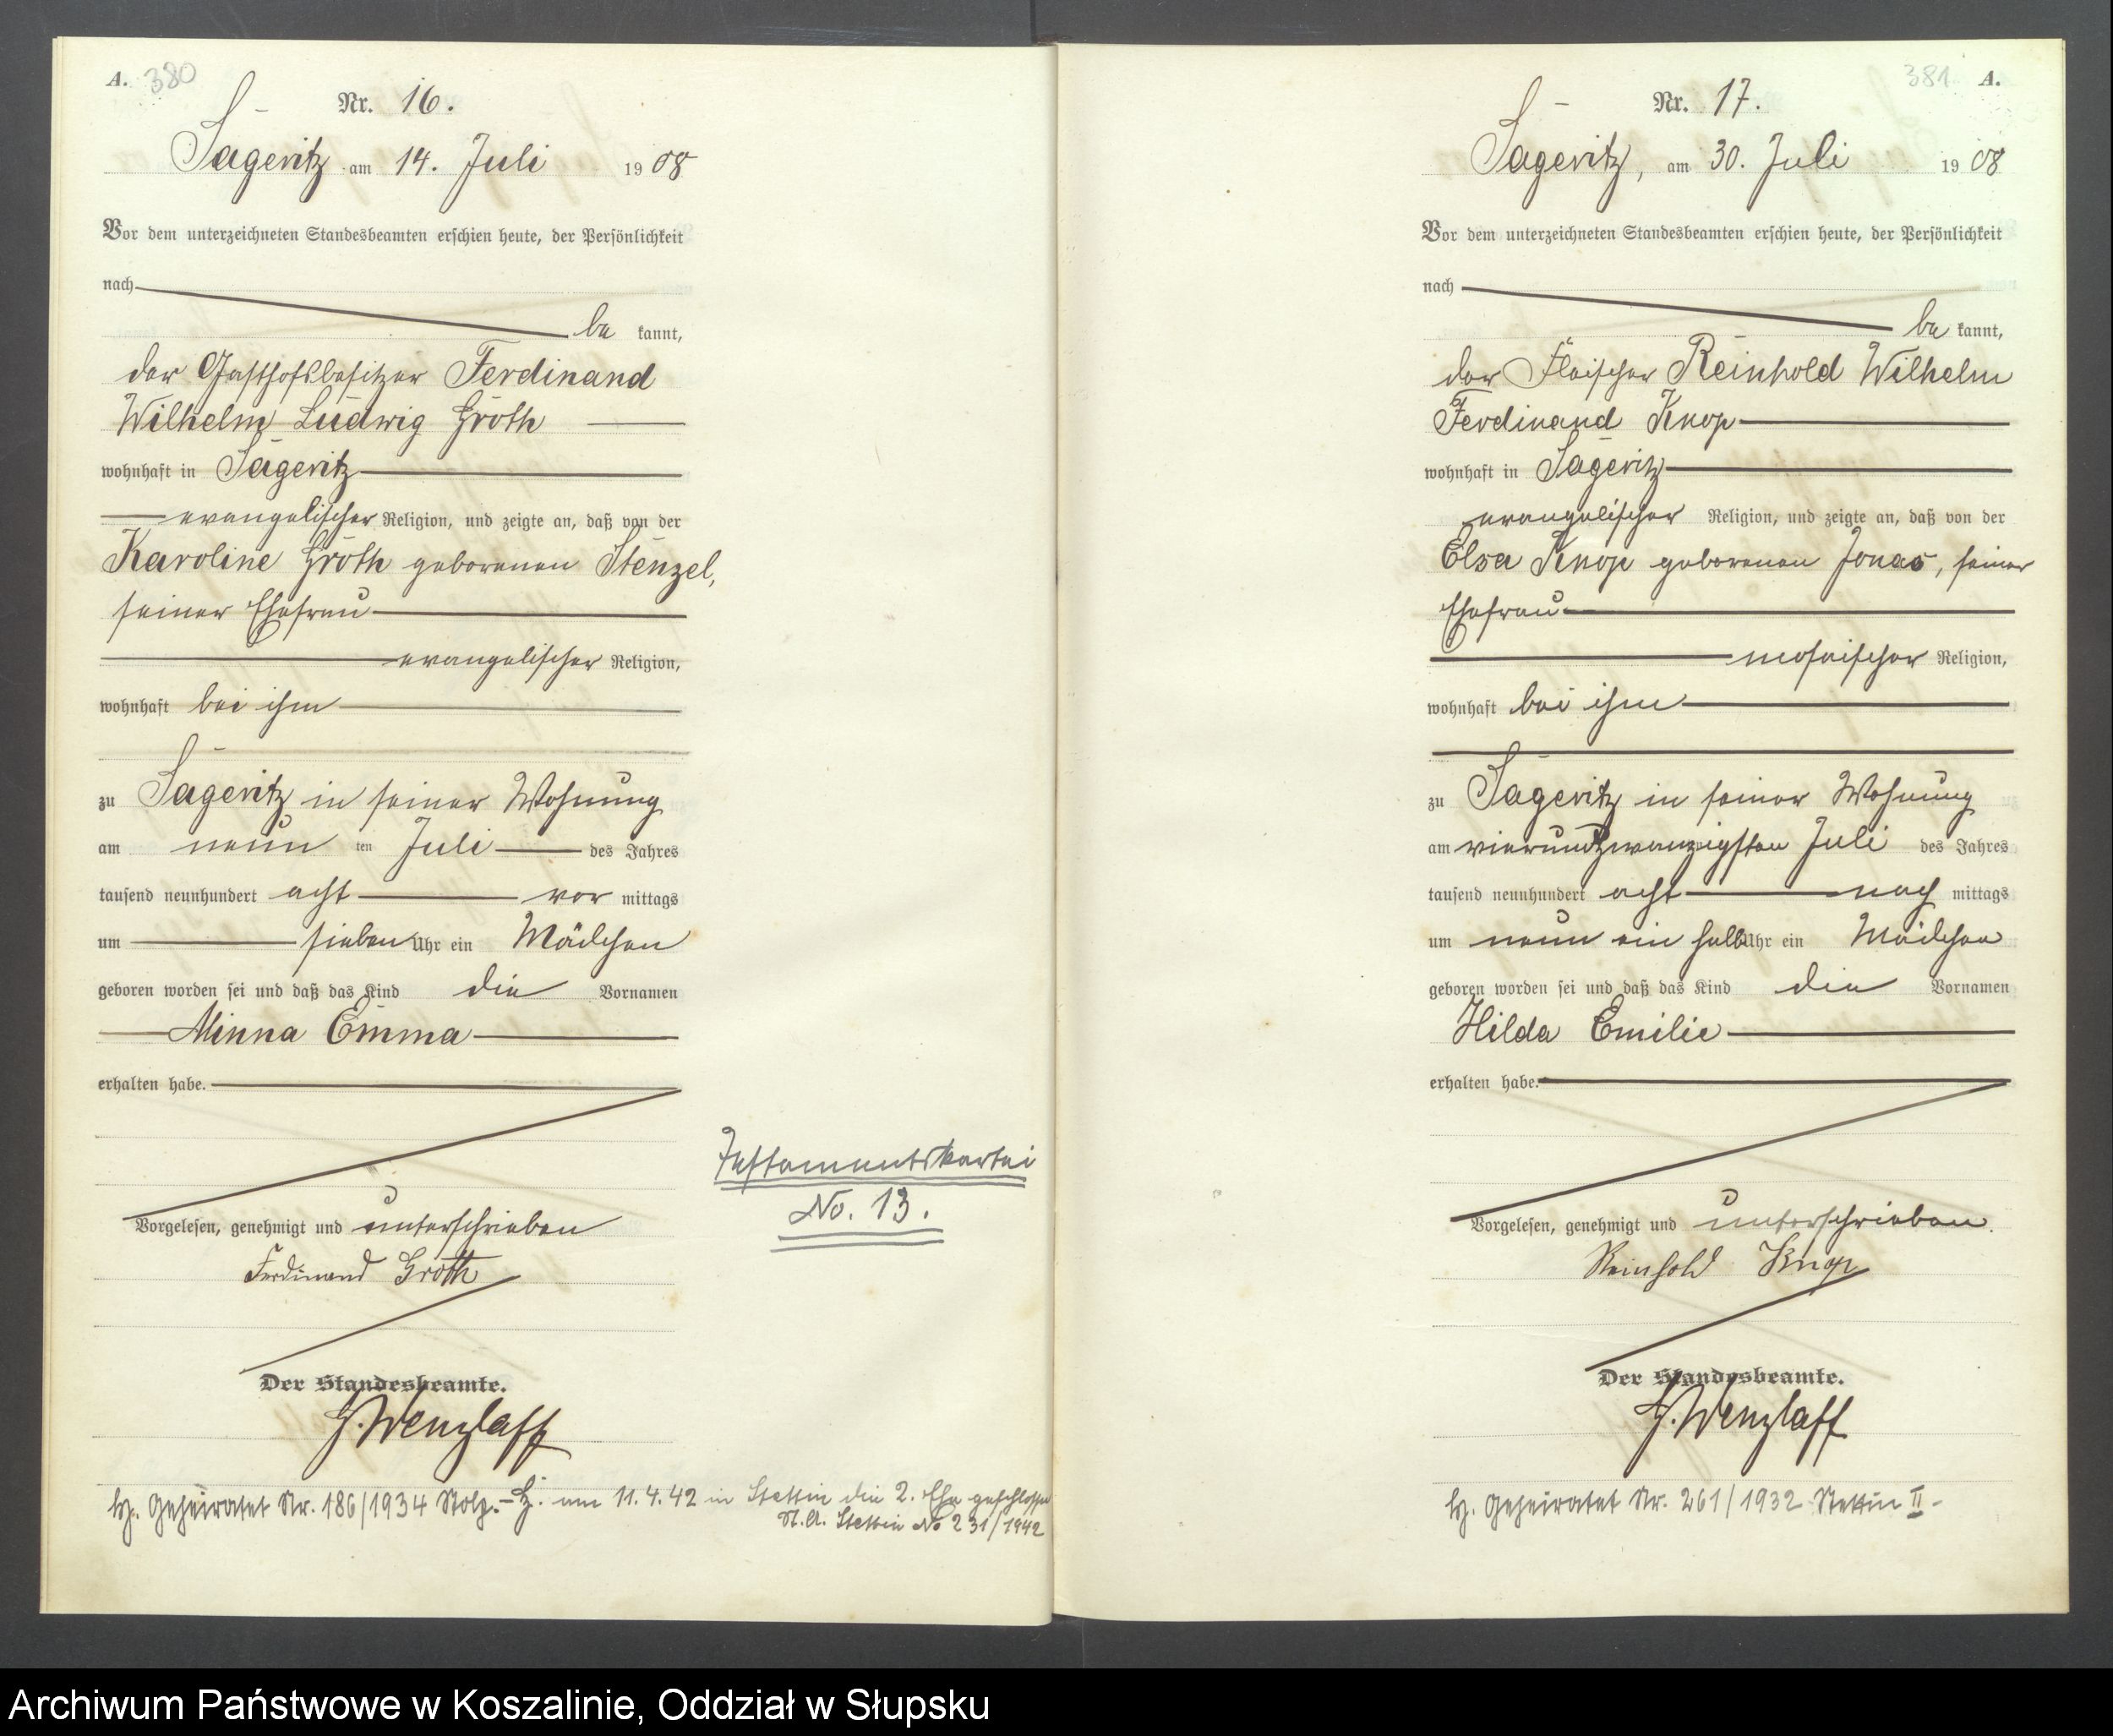 A. 380
Nr. 16.
Sageritz am 14. Juli 1908
Vor dem unterzeichneten Standesbeamten erschien heute, der Persönlichkeit
nach
be kannt,
der Gasthofsbesitzer Ferdinand
Wilhelm Ludwig Groth
wohnhaft in Sageritz
evangelischer Religion, und zeigte an, daß von der
Karoline Groth geborenen Stenzel,
seiner Ehefrau
evangelischer Religion,
wohnhaft bei ihm
zu Sageritz in seiner Wohnung
am neun ten Juli des Jahres
tausend neunhundert acht vor mittags
um sieben Uhr ein Mädchen
geboren worden sei und daß das Kind die Vornamen
Minna Emma
erhalten habe.
Testamentskartei
No. 13.
Vorgelesen, genehmigt und unterschrieben
Ferdinand Groth
Der Standesbeamte.
H. Wenzlaff
Geheiratet Nr. 186/1934 Stolp. - am 11.4.42 in Stettin die 2. Ehe geschlossen
St. A. Stettin No 231/1942
381 A.
Nr. 17.
Sageritz, am 30. Juli 1908
Vor dem unterzeichneten Standesbeamten erschien heute, der Persönlichkeit
nach
be kannt,
der Fleischer Reinhold Wilhelm
Ferdinand Knop
wohnhaft in Sageritz
evangelischer Religion, und zeigte an, daß von der
Elsa Knop geborenen Jonas, seiner
Ehefrau
mosaischer Religion,
wohnhaft bei ihm
zu Sageritz in seiner Wohnung
am vierundzwanzigsten Juli des Jahres
tausend neunhundert acht nach mittags
um neun ein halb Uhr ein Mädchen
geboren worden sei und daß das Kind die Vornamen
Hilda Emilie
erhalten habe.
Vorgelesen, genehmigt und unterschrieben.
Reinhold Knop
Der Standesbeamte.
H. Wenzlaff
Geheiratet Nr. 261/1932 Stettin II -
Archiwum Państwowe w Koszalinie, Oddział w Słupsku